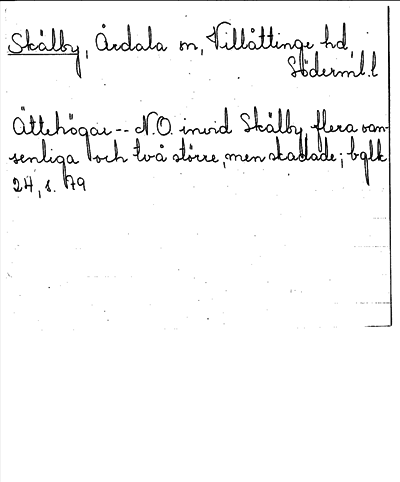 Skälby, Årdala sn, Villåttinge hd,
Söderml.l
Ättehögar -- N.O. invid Skälby, flera van-
senliga och två större, men skadade; bglk
24, s. 79